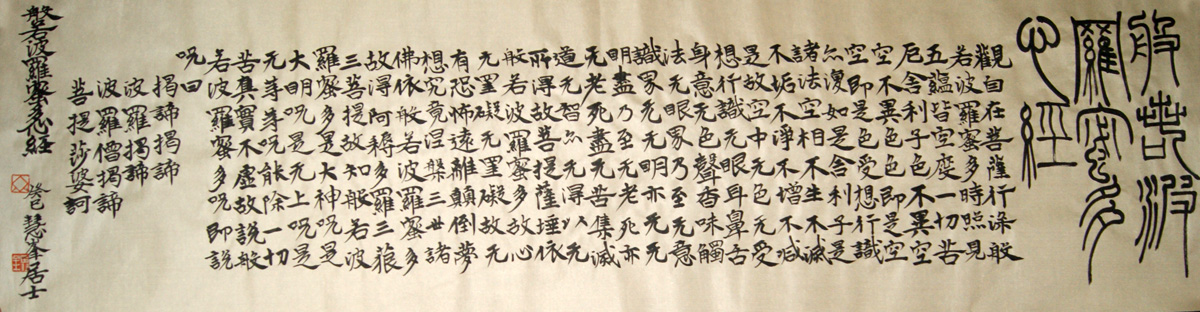 般若波
羅蜜多
心經
觀自在菩薩行深般
若波羅蜜多時照見
五蘊皆空度一切苦
厄舍利子色不異空
空不異色色即是空
空即是色受想行識
亦復如是舍利子是
諸法空相不生不滅
不垢不淨不增不減
是故空中无色无受
想行識无眼耳鼻舌
身意无色聲香味觸
法无眼界乃至无意
識界无无明亦无无
明盡乃至无老死亦
无老死盡无苦集滅
道无智亦无得以无
所得故菩提薩埵依
般若波羅蜜多故心
无罣礙无罣礙故无
有恐怖遠離顛倒夢
想究竟涅槃三世諸
佛依般若波羅蜜多
故得阿耨多羅三藐
三菩提故知般若波
羅蜜多是大神呪是
大明呪是无上呪是
无等等呪能除一切
苦真實不虛故說般
若波羅蜜多呪即說
呪曰
揭諦揭諦
波羅揭諦
波羅僧揭諦
菩提莎婆訶
般若波羅蜜多心經
癸巳 慧峯居士